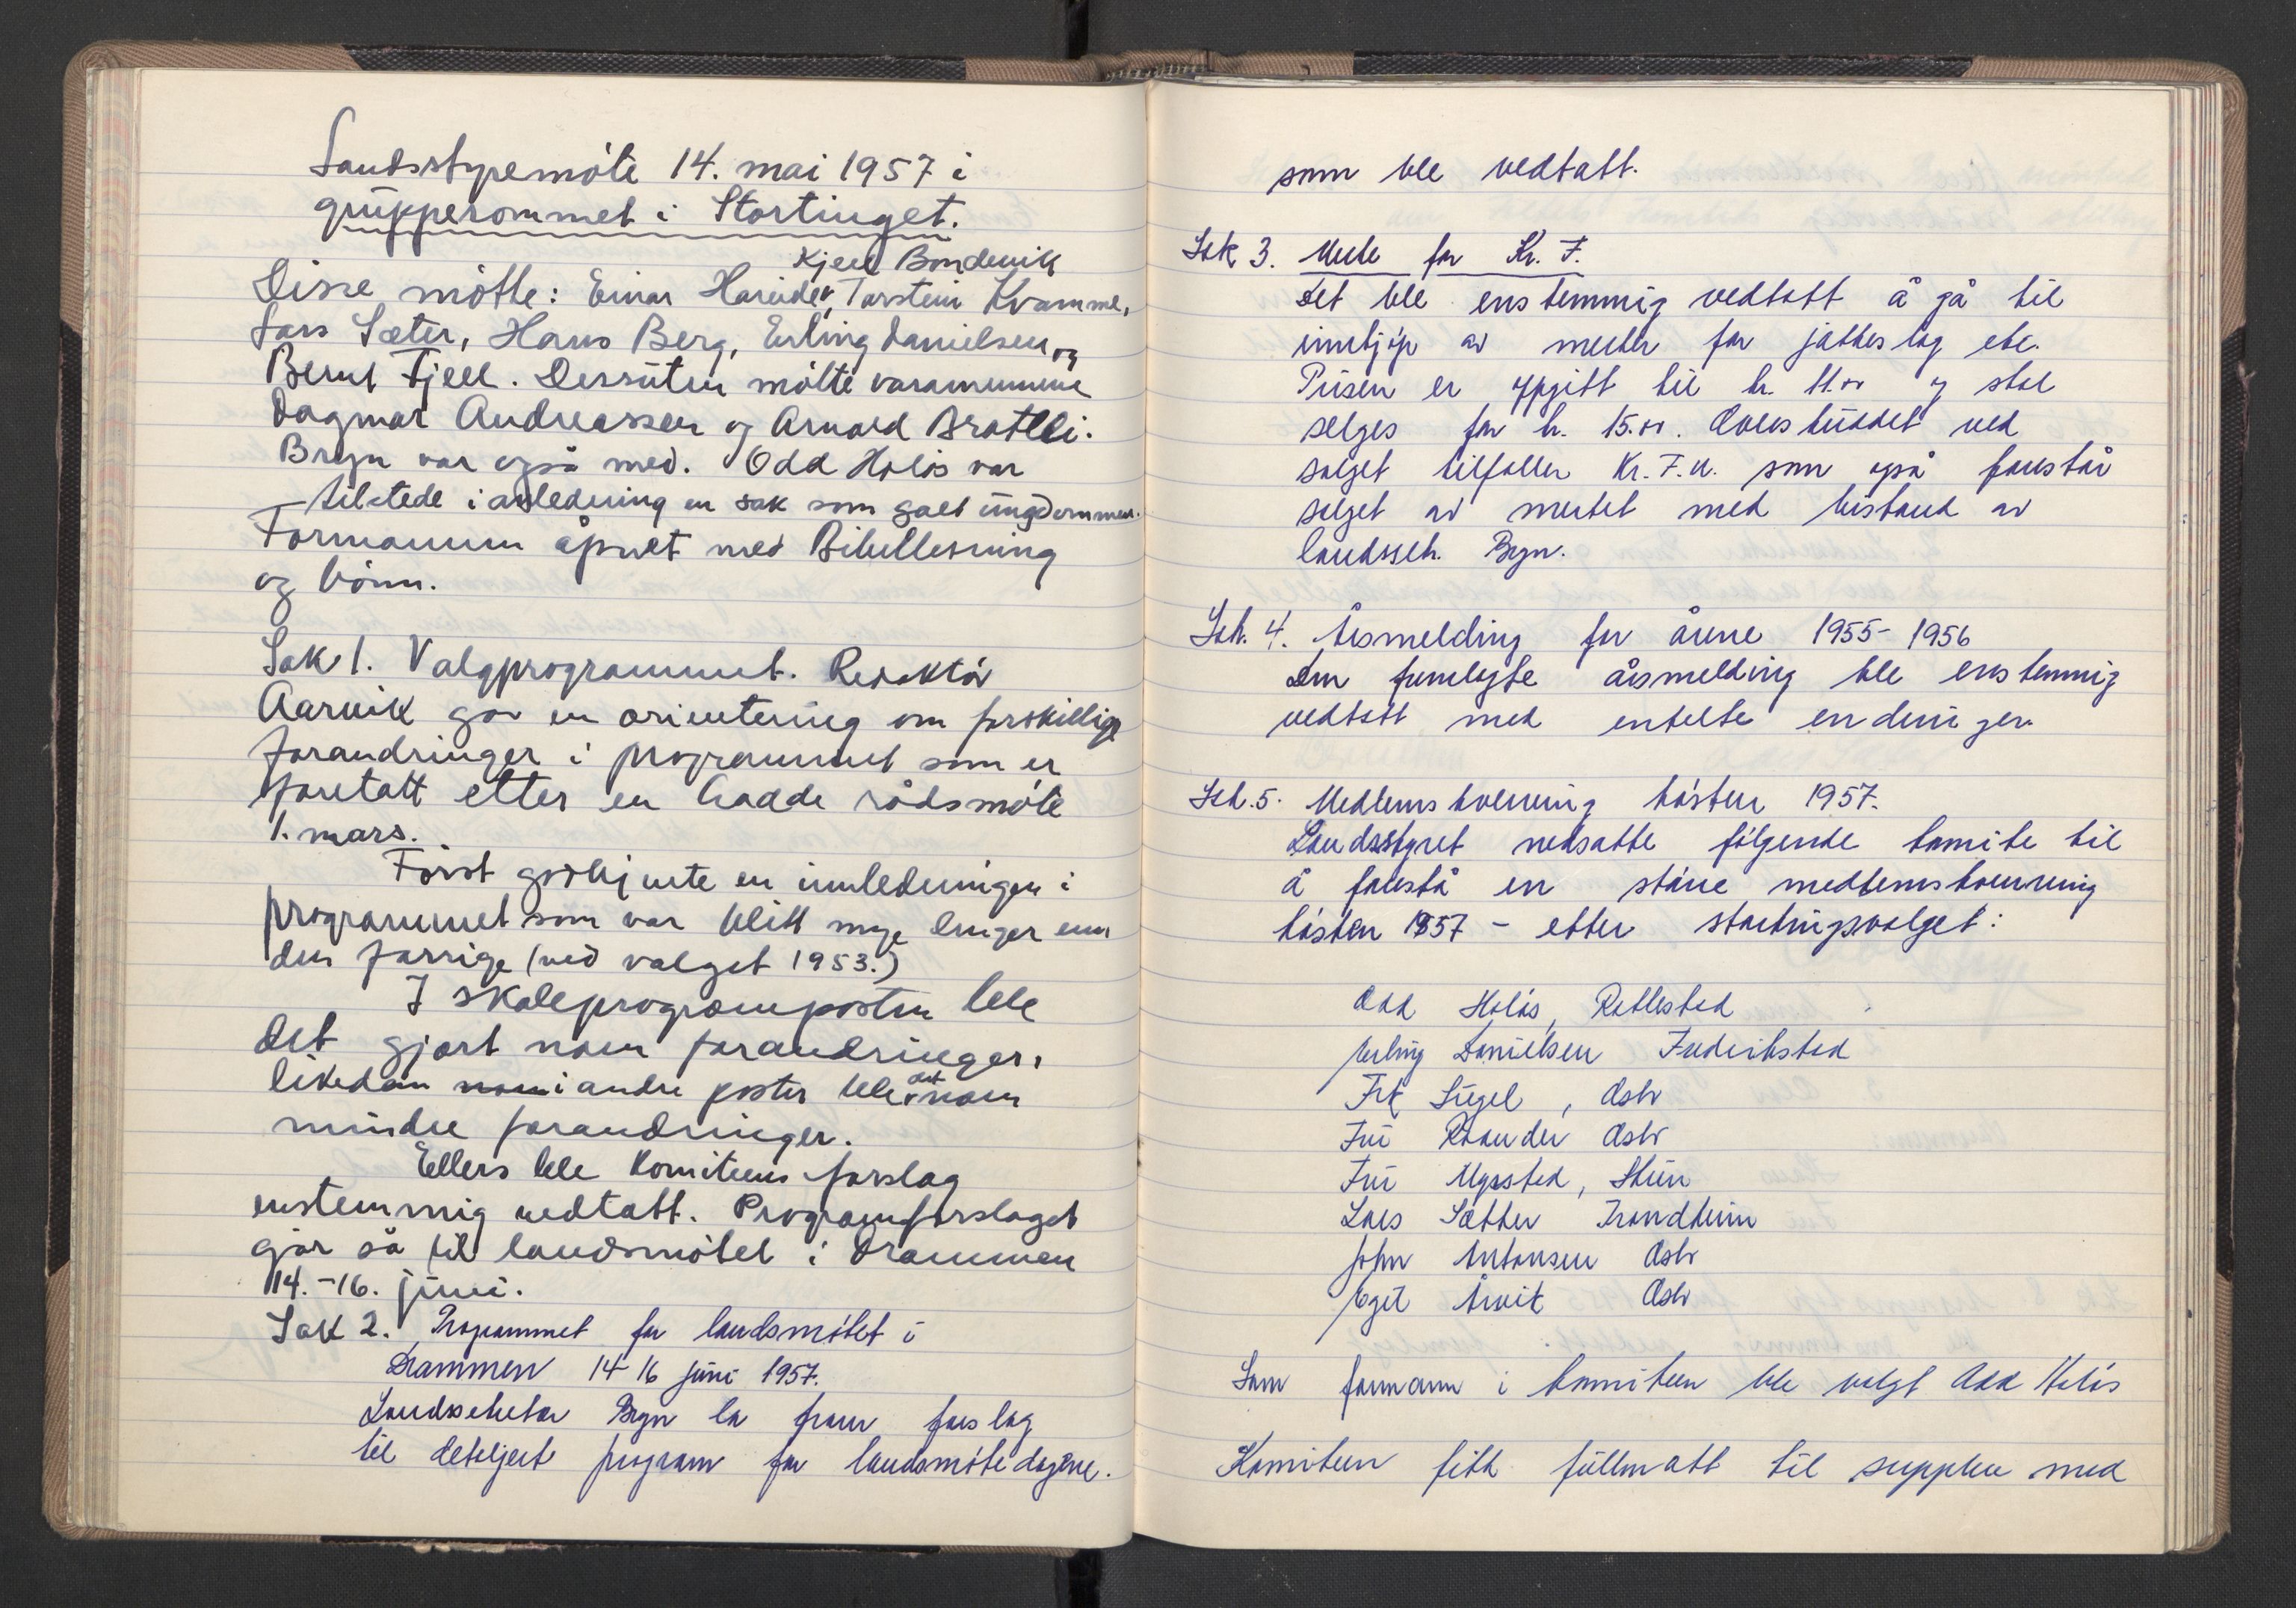 Landsstyremöte 14. mai 1957 i
grupperommet i Stortinget.
Kjell Bondevik
Disse mötte: Einar Hareide, Torstein Kvamme,
Lars Sæter, Hans Berg, Erling Danielsen, og
Bernt Fjell. Dessuten mötte varamennene
Dagmar Andreassen og Arnold Bratlli.
Bryn var også med. Odd Holås var
tilstede i anledning en sak som galt ungdommen.
Formannen åpnet med Bibellesning
og bönn.
Sak 1. Valgprogrammet. Redaktör
Aarvik gav en orientering om forskillige
forandringer i programmet som er
foretatt etter en hadde rådsmöte
1. mars.
Först godkjente en innledningen i
programmet som var blitt mye lenger enn
den forrige (ved valget 1953.)
I skoleprogramposten ble
det gjort noen forandringer,
likedan i andre poster ble det noen
mindre forandringer.
Ellers ble komiteens forslag
enstemmig vedtatt. Programforslaget
går så til landsmötet i Drammen
14.-16. juni.
Sak 2. Programmet for landsmötet i
Drammen 14-16 juni 1957.
Landssekretær Bryn la fram forslag
til detaljert program for landsmötedagene.
som ble vedtatt.
Sak 3. Merke for Kr. F.
Det ble enstemmig vedtatt å gå til
innkjöp av merker for jakkeslag etc.
Prisen er oppgitt til kr. 11.00 og skal
selges for kr. 15.00. Overskuddet ved
salget tilfaller Kr. F. U. som også forestår
salget av merket med bistand av
landssekr. Bryn.
Sak. 4. Årsmelding for årene 1955-1956
Den fremlagte årsmelding ble enstemmig
vedtatt med enkelte endringer.
Sak. 5. Medlemsverving hösten 1957.
Landsstyret nedsatte fölgende komite til
å forestå en större medlemsverving
hösten 1957 - etter stortingsvalget:
Odd Holås, Rakkestad
Erling Danielsen Fredrikstad
Frk Siegel, Oslo
Fru Oslo
Fru Mysstad, Skien
Lars Sætter Trondheim
John Antonsen Oslo
Egil Årvik Oslo
Som formann i komiteen ble valgt Odd Holås
Komiteen fikk fullmakt til supplere med